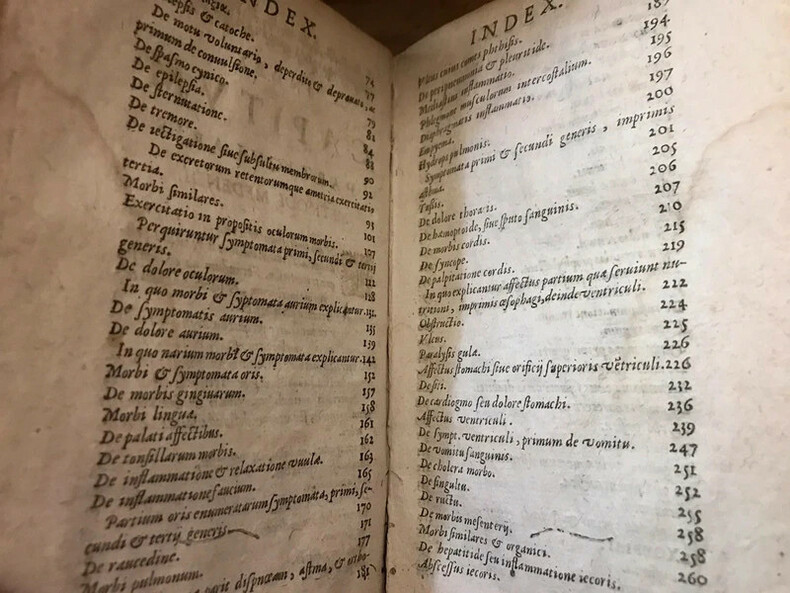 INDEX.
& catoche.
De motu voluntario, deperdito & deprauato, ac
primum de conuulsione. 74
De spasmo cynico. 77
De epilepsia. 79
De sternutatione. 81
De tremore. 84
De iectigatione siue subsultu membrorum. 88
De excretorum retentorumque ametria exercitatio 90
tertia. 92
Morbi similares. 93
Exercitatio in propositis oculorum morbis. 101
Perquiruntur symptomata primi, secundi & tertij 107
generis.
De dolore oculorum. 122
In quo morbi & syptomata aurium explicantur. 132
De symptomatis aurium. 135
De dolore aurium. 139
In quo narium morbi & symptomata explicantur. 142
Morbi & symptomata oris. 152
De morbis gingiuarum. 157
Morbi linguæ. 158
De palati affectibus. 161
De tonsillarum morbis. 162
De inflammatione & relaxatione vuulæ. 163
De inflammatione faucium. 165
Partium oris enumeratarum symptomata, primi, se-
cundi & tertij generis 170
De raucedine. 171
Morbi pulmonum. 177
dispnœam, astma, & ortho- 181
INDEX.
comes phthisis. 189
De peripneumonia & pleuritide. 194
Mediastini inflammatio. 195
Phlegmone musculorum intercostalium. 196
Diaphragmatis inflammatio. 197
Empyema. 200
Hydrops pulmonis.
Symptomata primi & secundi generis, imprimis
asthma. 201
Tussis. 205
De dolore thoracis. 206
De hæmoptoide, siue sputo sanguinis. 207
De morbis cordis. 210
De syncope. 215
De palpitatione cordis. 219
In quo explicantur affectus partium quæ seruiunt nu-
tritioni, imprimis œsophagi, deinde ventriculi. 222
Obstructio. 224
Vlcus. 225
Paralysis gulæ. 226
Affectus stomachi siue orificij superioris vẽtriculi. 226
De siti. 232
De cardiogmo seu dolore stomachi. 236
Affectus ventriculi. 239
De sympt. ventriculi, primum de vomitu. 247
De vomitu sanguinis. 251
De cholera morbo. 252
De singultu. 255
De ructu. 258
De morbis mesenterij. 258
Morbi similares & organici. 260
De hepatitide seu inflammatione iecoris.
Abscessus iecoris.